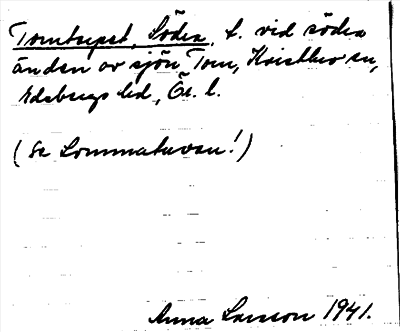 Tomtsept, Södra, t. vid södra
änden av sjön Tom, Kvistbro sn,
Edsbergs hd, Ör. l.
(Se Lommatuvan!)
Anna Larsson 1941.